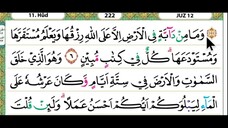 11. Hûd 222 JUZ 12
وَمَا مِنْ دَآبَّةٍ فِى الْاَرْضِ اِلَّا عَلَى اللّٰهِ رِزْقُهَا وَيَعْلَمُ مُسْتَقَرَّهَا
وَمُسْتَوْدَعَهَا ۗ كُلٌّ فِيْ كِتٰبٍ مُّبِيْنٍ ٦ وَهُوَ الَّذِيْ خَلَقَ
السَّمٰوٰتِ وَالْاَرْضَ فِيْ سِتَّةِ اَيَّامٍ وَّكَانَ عَرْشُهٗ عَلَى
الْمَاۤءِ لِيَبْلُوَكُمْ اَيُّكُمْ اَحْسَنُ عَمَلًا ۗ وَلَىِٕنْ قُلْتَ